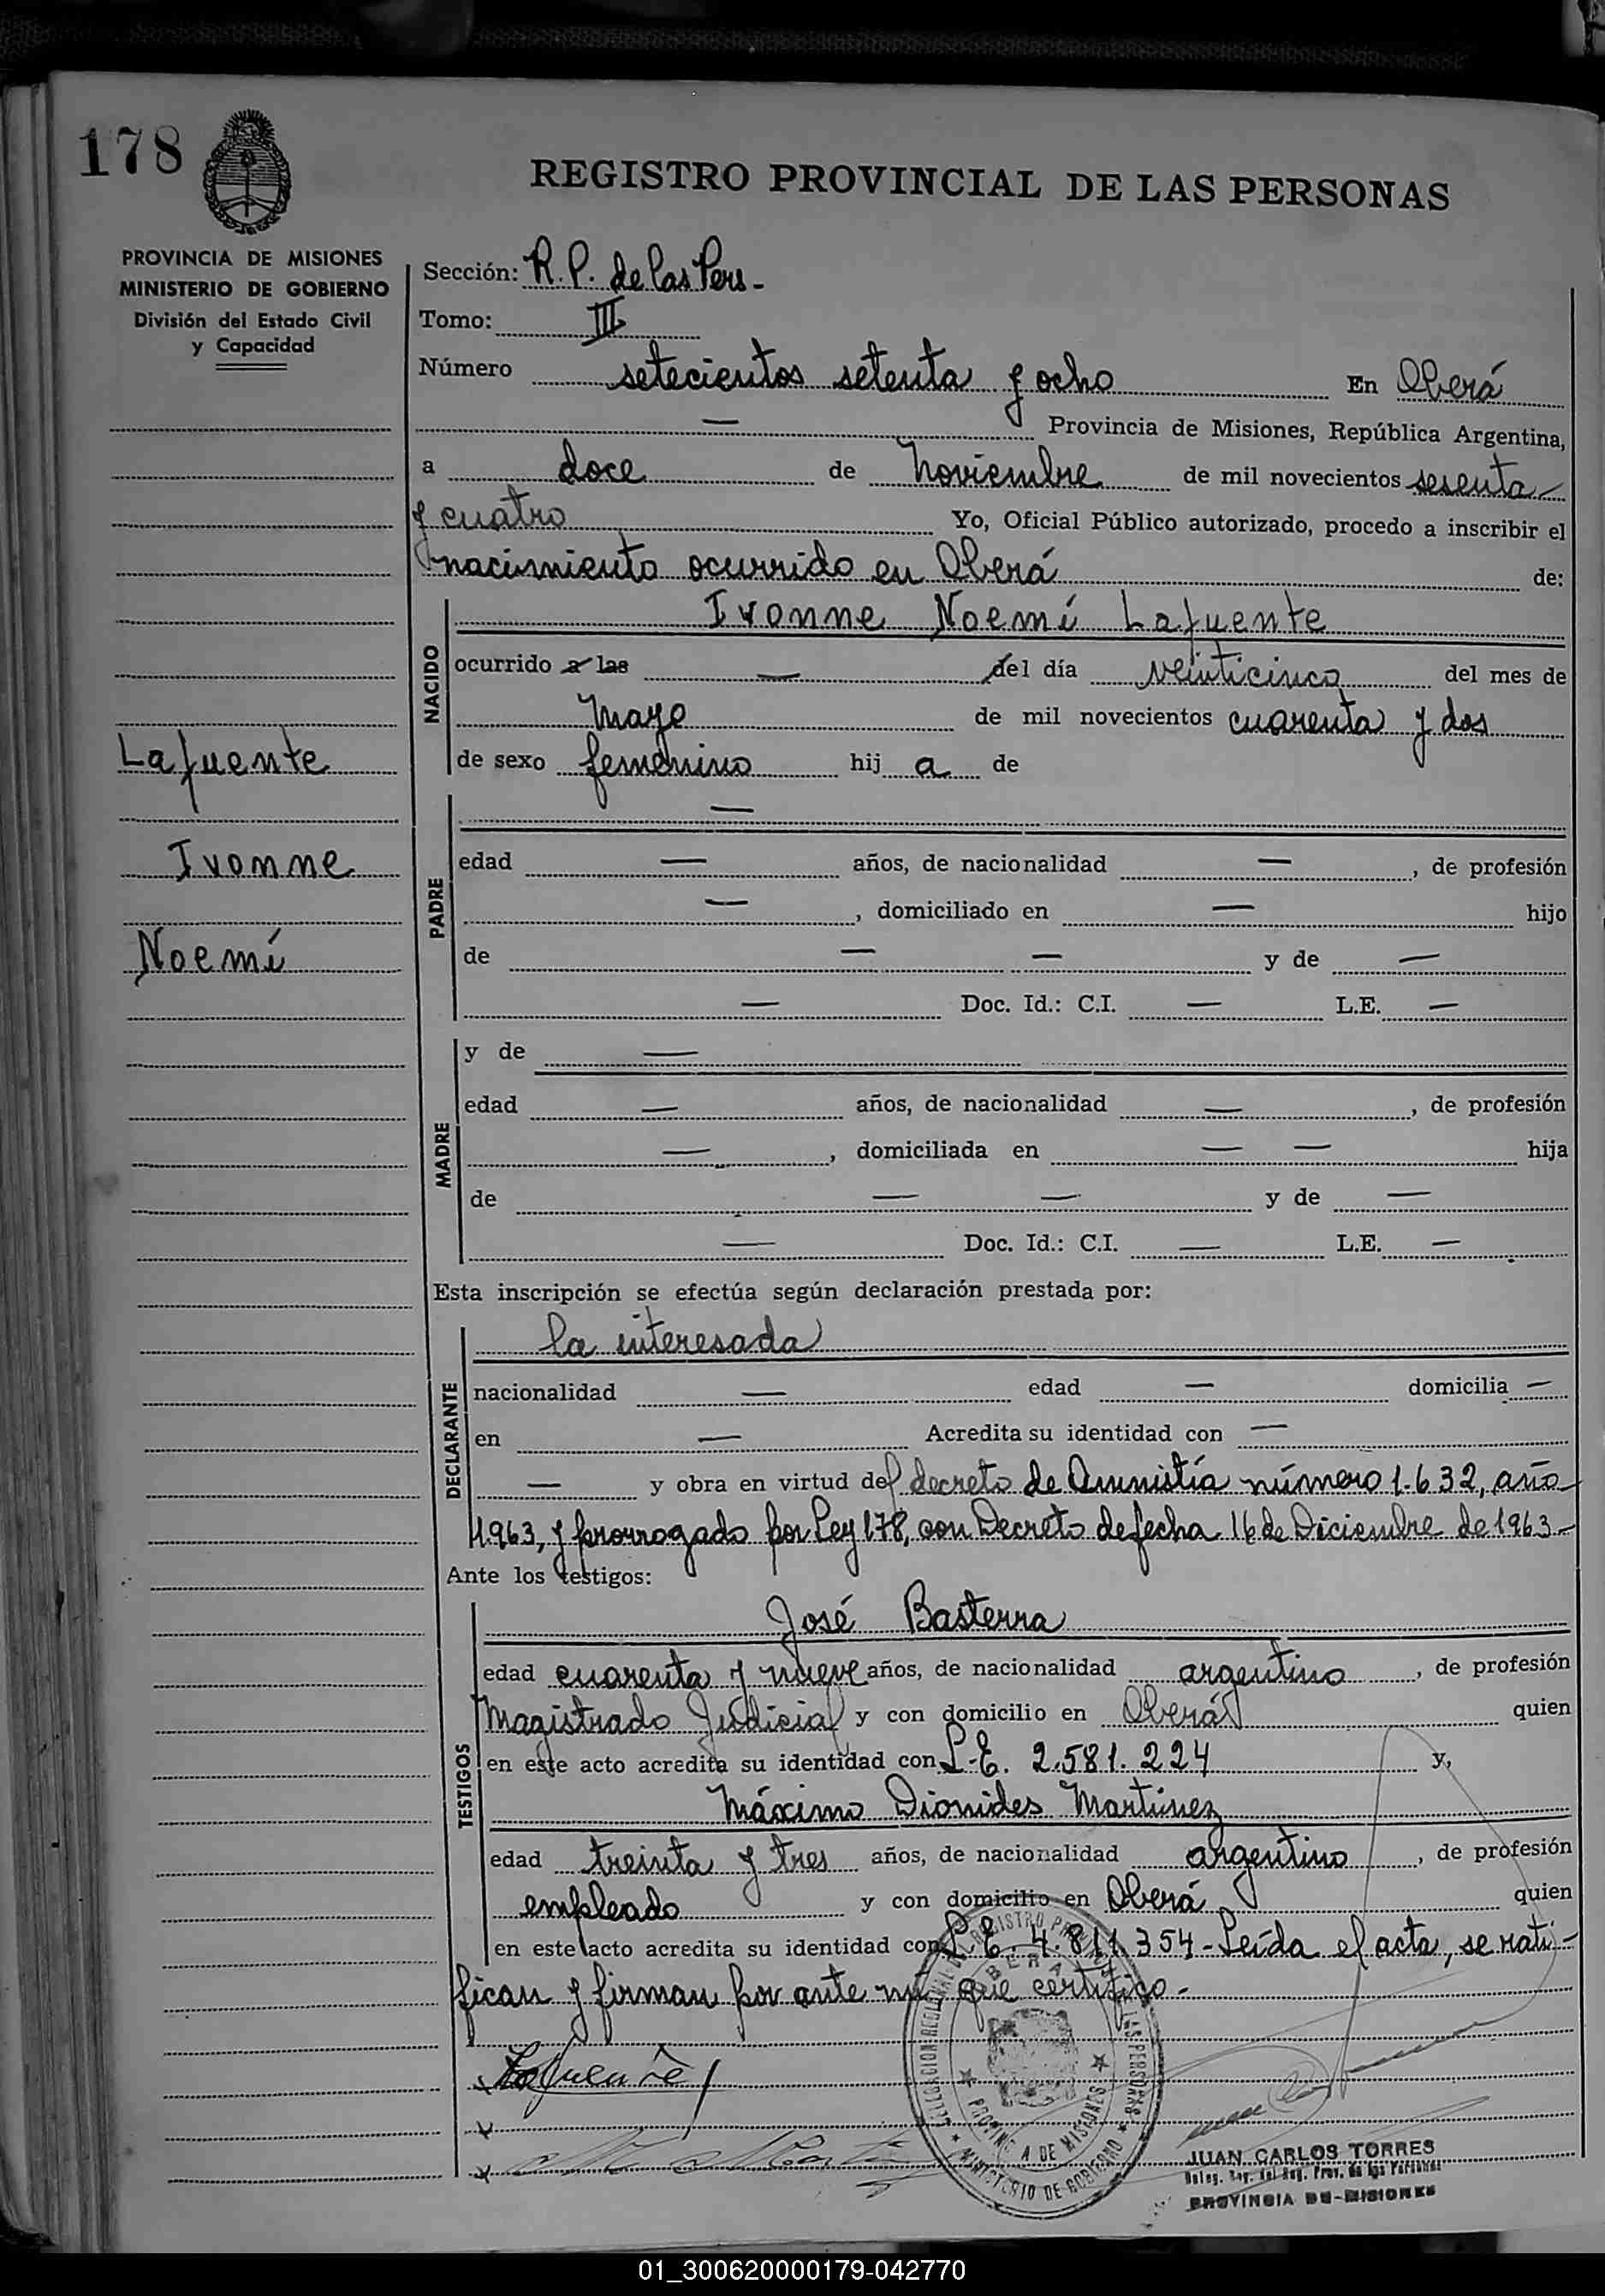 178
REGISTRO PROVINCIAL DE LAS PERSONAS
PROVINCIA DE MISIONES
MINISTERIO DE GOBIERNO
División del Estado Civil
y Capacidad
Lafuente
Ivonne
Noemí
Sección: R. P. de las Pers -
Tomo: III
Número setecientos setenta y ocho En Oberá
— Provincia de Misiones, República Argentina,
a doce de Noviembre de mil novecientos sesenta
y cuatro Yo, Oficial Público autorizado, procedo a inscribir el
nacimiento ocurrido en Oberá de:
NACIDO
Ivonne Noemí Lafuente
ocurrido a las — del día veinticinco del mes de
Mayo de mil novecientos cuarenta y dos
de sexo femenino hij a de
PADRE
—
edad — años, de nacionalidad — , de profesión
— , domiciliado en — hijo
de — — y de —
— Doc. Id.: C.I. — L.E. —
MADRE
y de —
edad — años, de nacionalidad — , de profesión
— , domiciliada en — — hija
de — — y de —
— Doc. Id.: C.I. — L.E. —
Esta inscripción se efectúa según declaración prestada por:
DECLARANTE
la interesada
nacionalidad — edad — domicilia —
en — Acredita su identidad con —
— y obra en virtud del decreto de Amnistía número 1.632, año
1963, y prorrogado por Ley 178, con Decreto de fecha 16 de Diciembre de 1963 -
Ante los testigos:
TESTIGOS
José Basterra
edad cuarenta y nueve años, de nacionalidad argentino , de profesión
Magistrado Judicial y con domicilio en Oberá quien
en este acto acredita su identidad con L.E. 2.581.224 y,
Máximo Dionides Martínez
edad treinta y tres años, de nacionalidad argentino , de profesión
empleado y con domicilio en Oberá quien
en este acto acredita su identidad con L.E. 4.811.354 - Leída el acta, se rati-
fican y firman por ante mí que certifico. -
x Lafuente
x
x
OBERA
PROVINCIA DE MISIONES
MINISTERIO DE GOBIERNO
JUAN CARLOS TORRES
Deleg. Reg. del Reg. Prov. de las Personas
PROVINCIA DE MISIONES
01_300620000179-042770